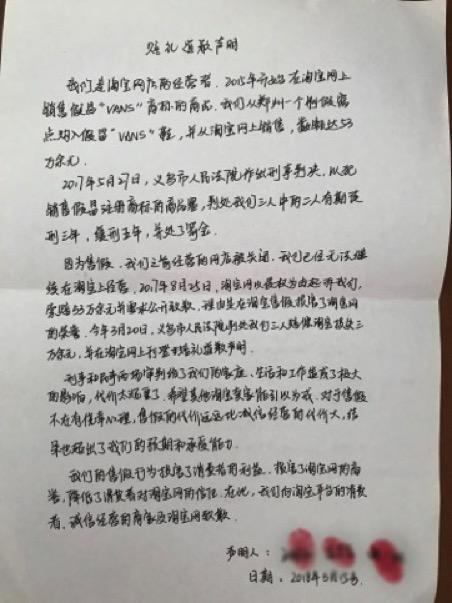 赔礼道歉声明
我们是淘宝网店的经营者，2015年开始在淘宝网上
销售假冒“VANS”商标的商品。我们从郑州一个制假窝
点购入假冒“VANS”鞋，并从淘宝网上销售，数额达53
万余元。
2017年5月27日，义乌市人民法院作出刑事判决，以犯
销售假冒注册商标的商品罪，判处我们三人中的二人有期徒
刑三年，缓刑五年，并处了罚金。
因为售假，我们之前经营的网店被关闭，我们已经无法继
续在淘宝上经营。2017年8月25日，淘宝网以侵权为由起诉我们，
索赔53万余元并要求公开致歉，理由是在淘宝售假损害了淘宝网
的荣誉。今年3月20日，义乌市人民法院判处我们三人赔偿淘宝损失三
万余元，并在淘宝网上刊登赔礼道歉声明。
刑事和民事两场审判给我们的家庭、生活和工作造成了极大
的影响，代价太惨重了。希望其他淘宝卖家能引以为戒，对于售假
不存在侥幸心理，售假的代价远远比诚信经营的代价大，结
果也超出了我们的预期和承受能力。
我们的售假行为损害了消费者的利益，损害了淘宝网的商
誉，降低了消费者对淘宝网的信任。在此，我们向淘宝平台的消费
者、诚信经营的商家及淘宝网致歉。
声明人：
日期：2018年5月15号